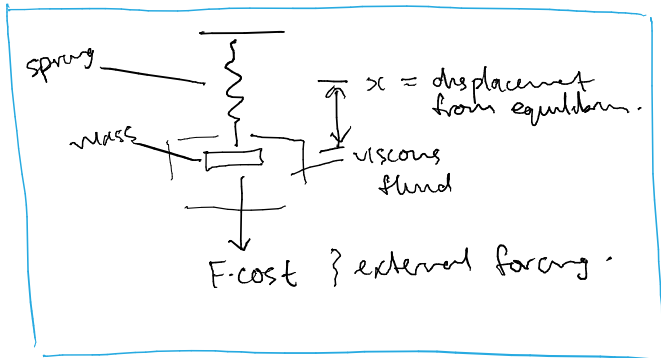 spring
x = displacement
from equilibrium.
mass
viscous
fluid
F.cost } external forcing.